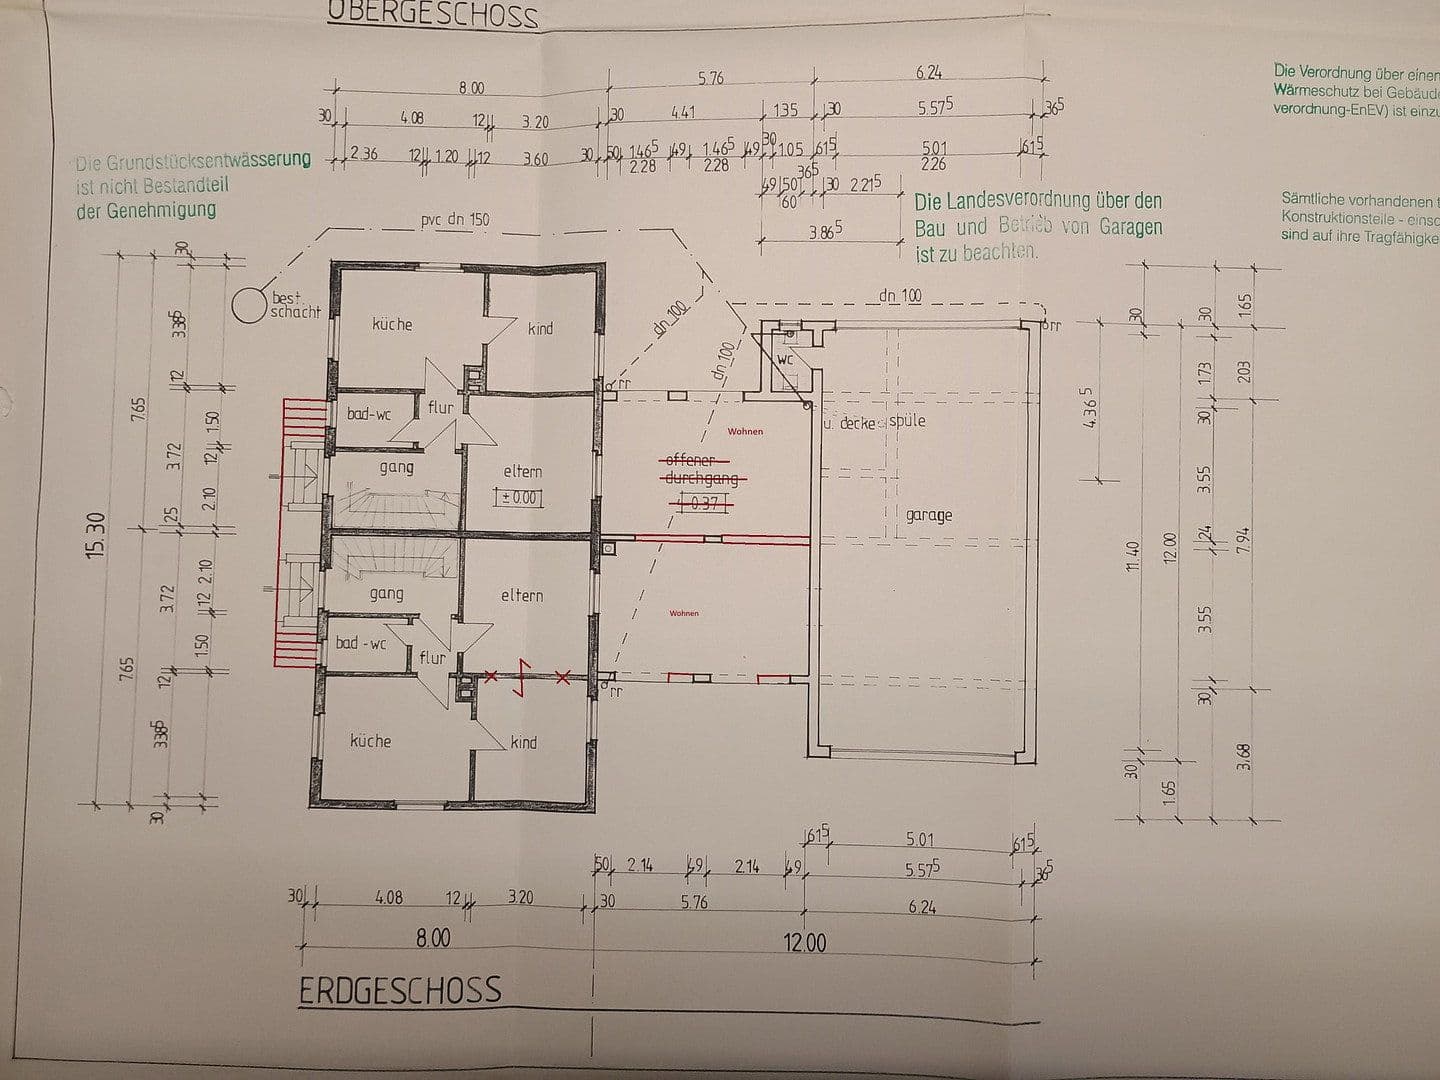 OBERGESCHOSS
8.00
5.76
6.24
30
4.08
12
3.20
30
4.41
1.35
30
5.57⁵
36⁵
2.36
12
1.20
12
3.60
30
50
1.46⁵
49
1.46⁵
49
30
1.05
61⁵
5.01
61⁵
2.28
2.28
36⁵
2.26
49
50
30
2.21⁵
60
3.86⁵
Die Verordnung über einen
Wärmeschutz bei Gebäude
verordnung-EnEV) ist einzu
Sämtliche vorhandenen t
Konstruktionsteile - einsc
sind auf ihre Tragfähigke
Die Grundstücksentwässerung
ist nicht Bestandteil
der Genehmigung
Die Landesverordnung über den
Bau und Betrieb von Garagen
ist zu beachten.
pvc dn 150
best.
schacht
dn 100
dn 100
dn 100
rr
rr
rr
küche
kind
wc
bad-wc
flur
Wohnen
u. decke
spüle
gang
eltern
± 0.00
offener
durchgang
0.37
garage
gang
eltern
Wohnen
bad-wc
flur
küche
kind
15.30
7.65
7.65
30
3.38⁵
12
3.72
25
3.72
12
3.38⁵
30
1.50
12
2.10
2.10
12
1.50
4.36⁵
30
11.40
30
12.00
1.65
30
1.73
30
3.55
24
3.55
30
1.65
2.03
7.94
3.68
61⁵
5.01
61⁵
50
2.14
49
2.14
49
5.57⁵
36⁵
30
4.08
12
3.20
30
5.76
6.24
8.00
12.00
ERDGESCHOSS